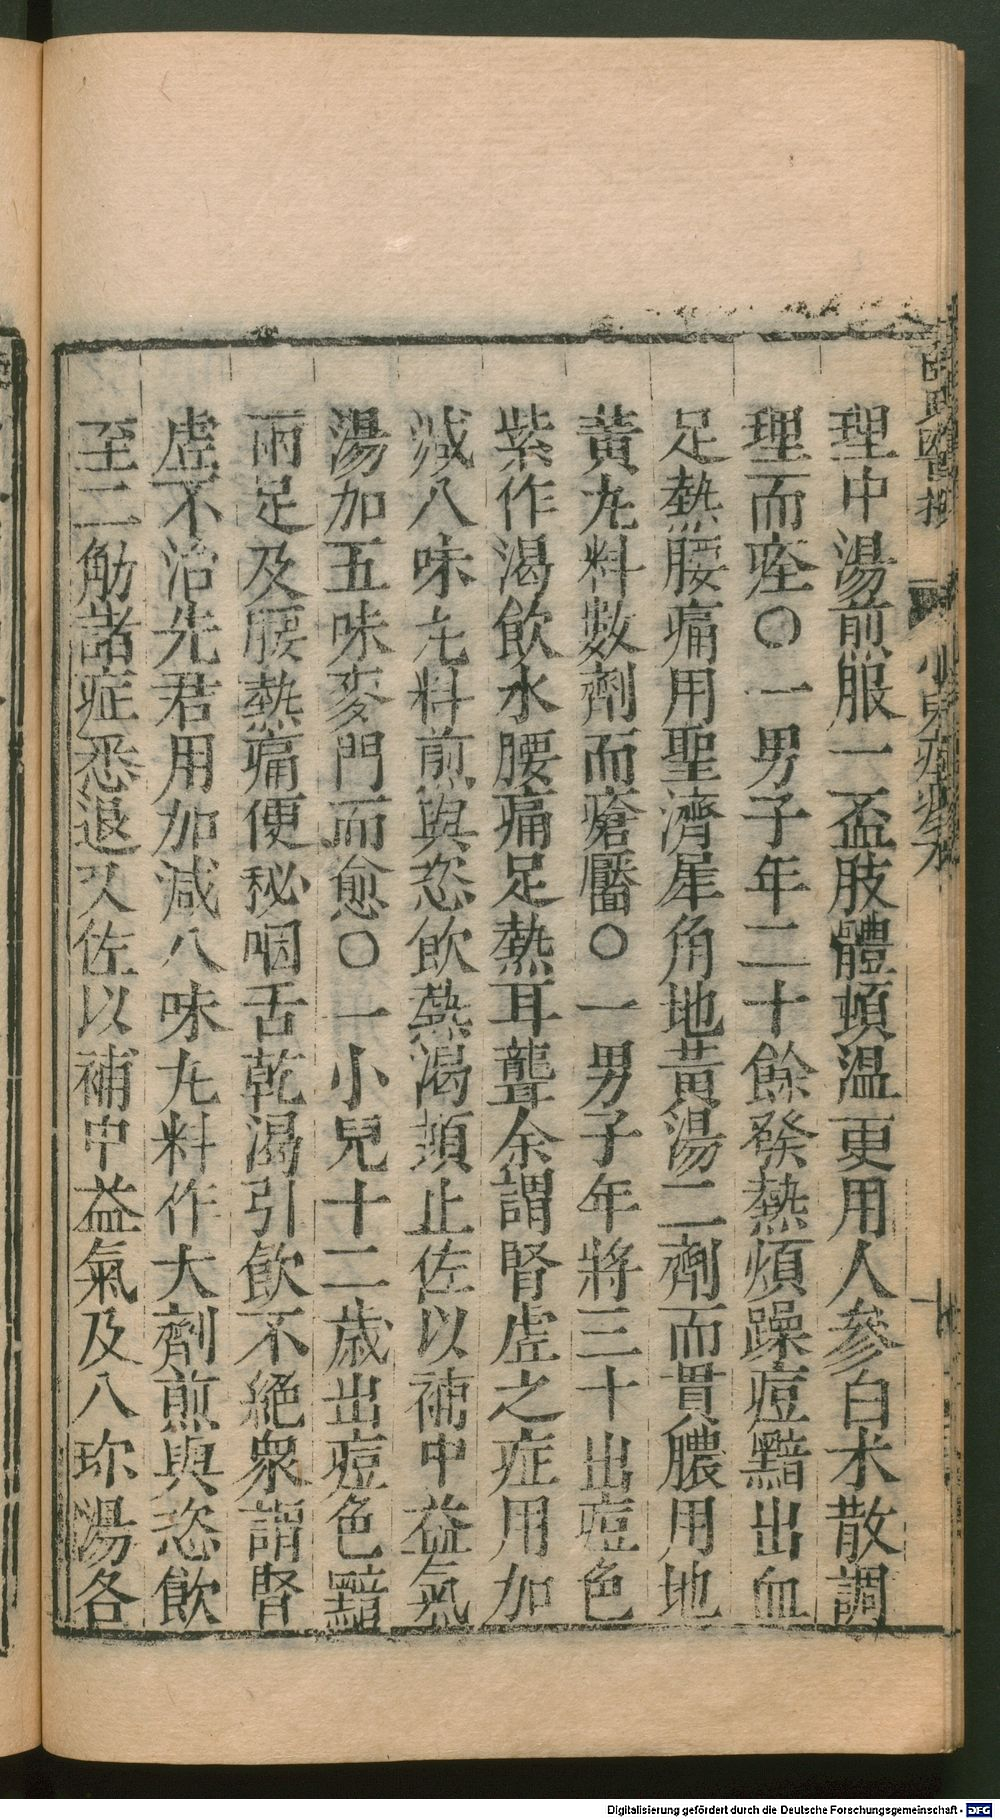 理中湯煎服一盃肢體頓温更用人參白术散調
理而痊○一男子年二十餘發熱煩躁痘黯出血
足熱腰痛用聖濟犀角地黄湯二劑而貫膿用地
黄丸料數劑而瘡靨○一男子年將三十出痘色
紫作渴飲水腰痛足熱耳聾余謂腎虚之症用加
减八味丸料煎與恣飲熱渴頓止佐以補中益氣
湯加五味麥門而愈○一小兒十二歳出痘色黯
兩足及腰熱痛便秘咽舌乾渴引飲不絶衆謂腎
虚不治先君用加減八味丸料作大劑煎與恣飲
至二觔諸症悉退又佐以補中益氣及八珎湯各
Digitalisierung gefördert durch die Deutsche Forschungsgemeinschaft - DFG